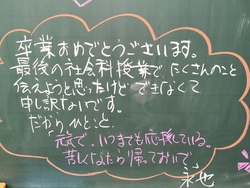 卒業おめでとうございます。
最後の社会科授業でたくさんのこと
伝えようと思ったけどできなくて
申し訳ないです。
だからひとこと。
元気で。いつまでも応援している。
苦しくなったら帰っておいで